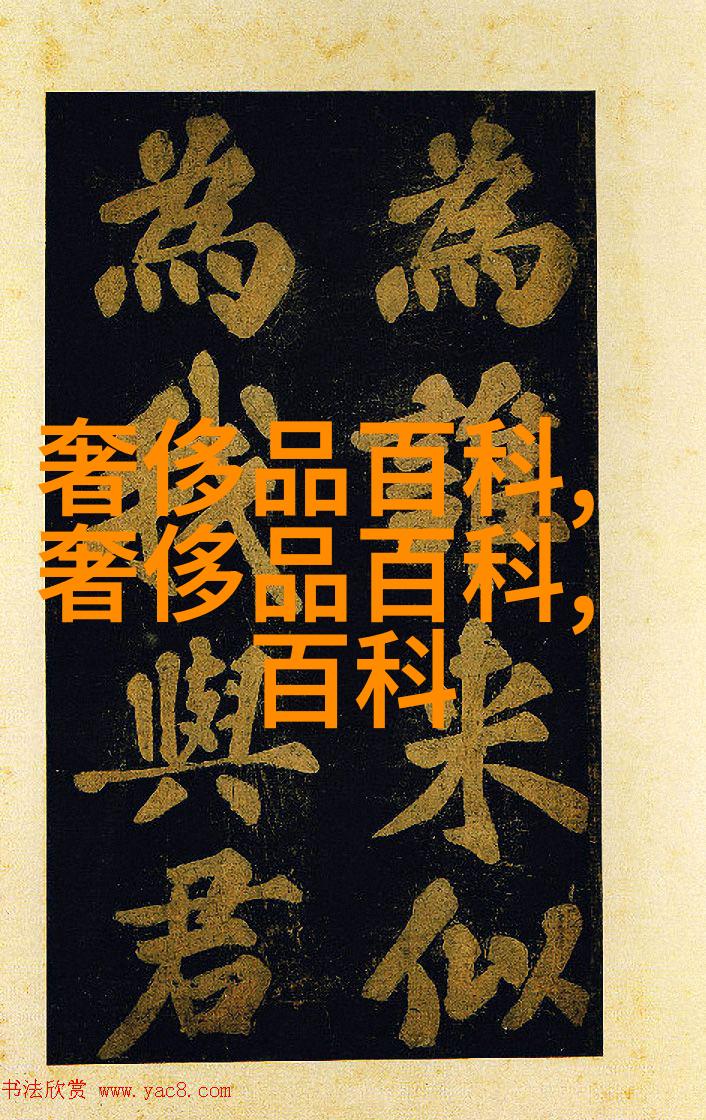 奢侈品百科,
奢侈品百科,
百科
為誰来似
為我與君
书法欣赏 www.yac8.com